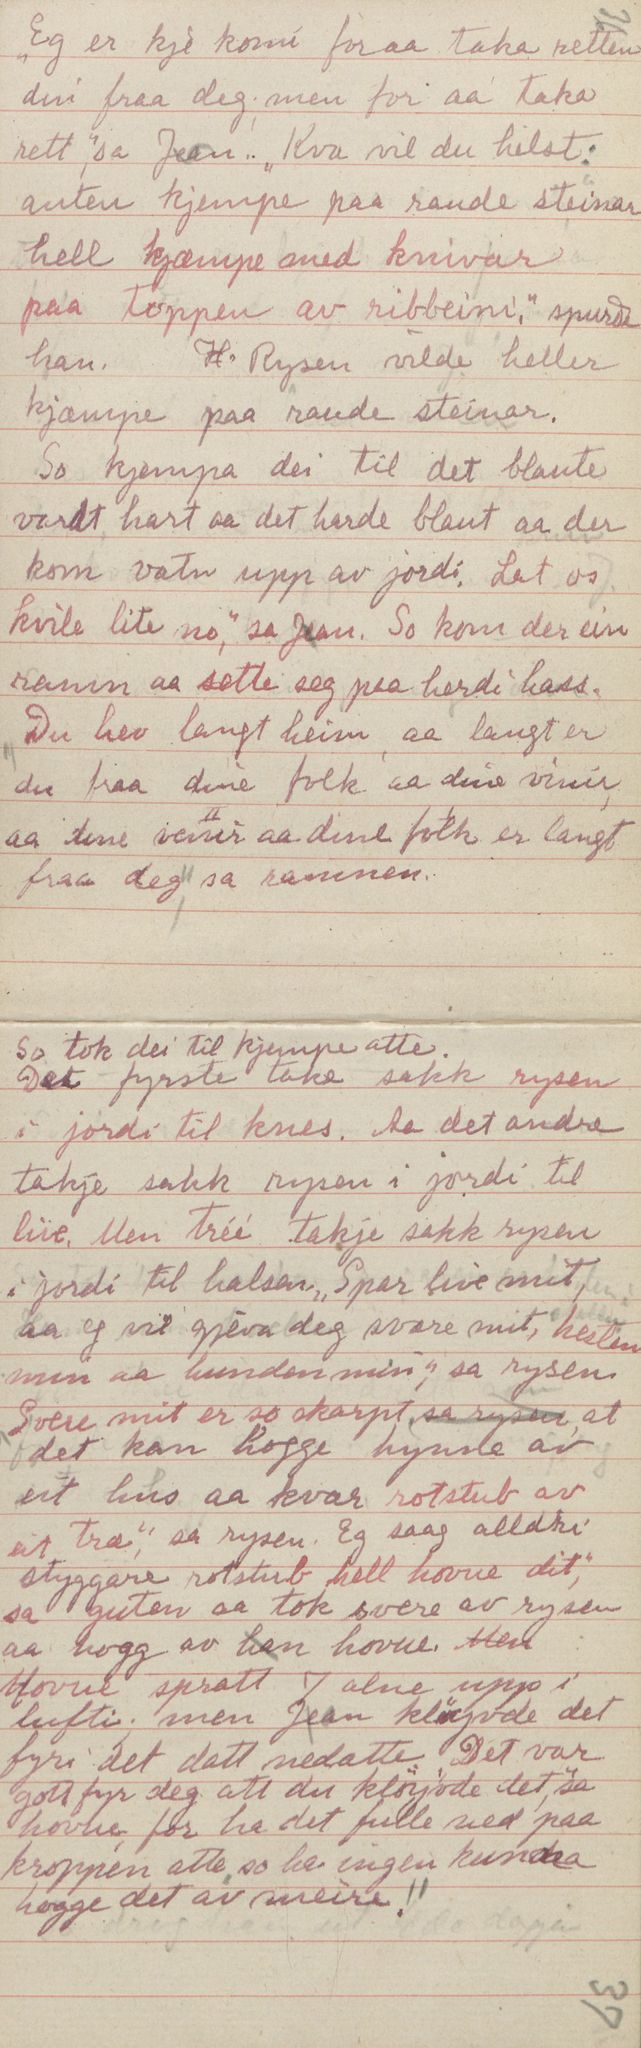 „Eg er kje komi for aa taka retten
din fraa deg, men for aa taka
rett," sa Jean. „Kva vil du helst:
anten kjempe paa raude steinar
hell kjæmpe med knivar
paa toppen av ribbeini," spurde
han. H. Rysen vilde heller
kjæmpe paa raude steinar.
So kjempa dei til det blaute
vardt hart aa det harde blaut aa der
kom vatn upp av jordi. Lat os
kvile lite no," sa Jean. So kom der ein
ramn aa sette seg paa herdi hass.
„Du hev langt heim, aa langt er
du fraa dine folk aa dine vinir,
aa dine venir aa dine folk er langt
fraa deg," sa ramnen.
So tok dei til kjempe atte.
Det fyrste take sakk rysen
i jordi til knes. Aa det andre
takje sakk rysen i jordi til
live. Men tréé takje sakk rysen
i jordi til halsen. „Spar live mit,
aa eg vil gjeva deg svære mit, hesten
min aa hunden min," sa rysen.
Svere mit er so skarpt, sa rysen, at
det kan hogge hynne av
eit hus aa kvar rotstub av
eit træ," sa rysen. Eg saag alldri
styggare rotstub hell hovue dit,"
sa guten aa tok svere av rysen
aa hogg av han hovue. Men
Hovue spratt 7 alne upp i
lufti; men Jean kløyvde det
fyri det datt nedatte. Det var
gott fyr deg att du kløyvde det," sa
hovue, for ha det fulle ned paa
kroppen atte, so ha ingen kunna
hogge det av meire!"
37